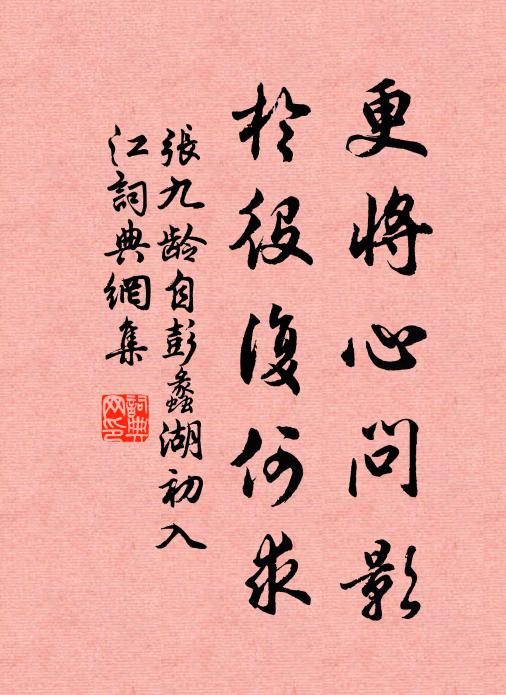 更將心問影
於役復何求
張九齡自彭蠡湖初入
江詞典網集
詞典
网印